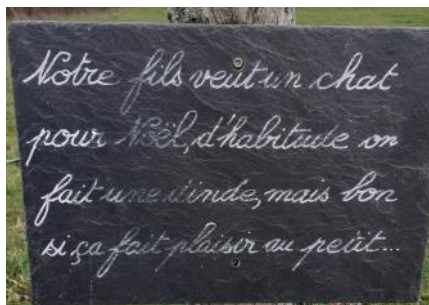 Notre fils veut un chat
pour Noël, d'habitude on
fait une dinde, mais bon
si ça fait plaisir au petit...